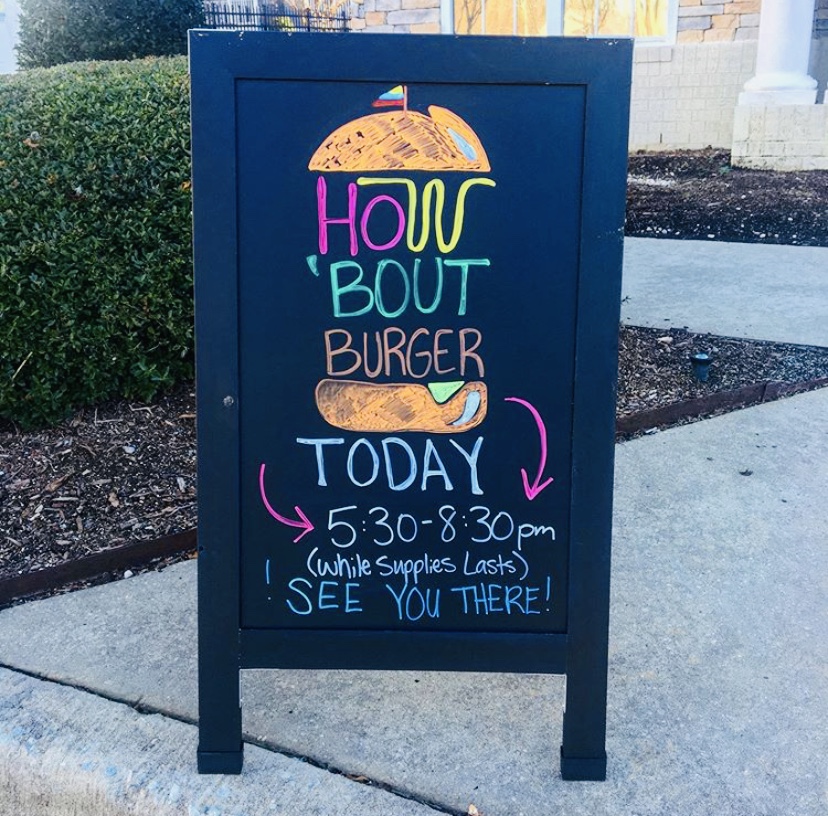 HOW
'BOUT
BURGER
TODAY
5:30-8:30pm
(While Supplies Lasts)
! SEE YOU THERE!